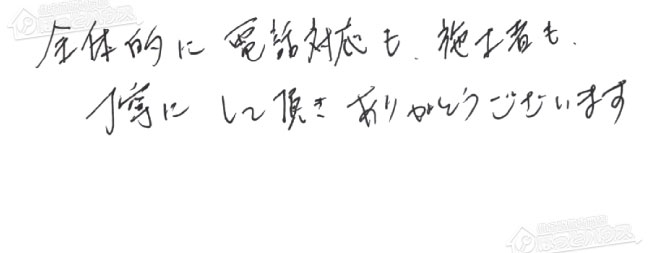 全体的に電話対応も、施工者も、
丁寧にして頂きありがとうございます